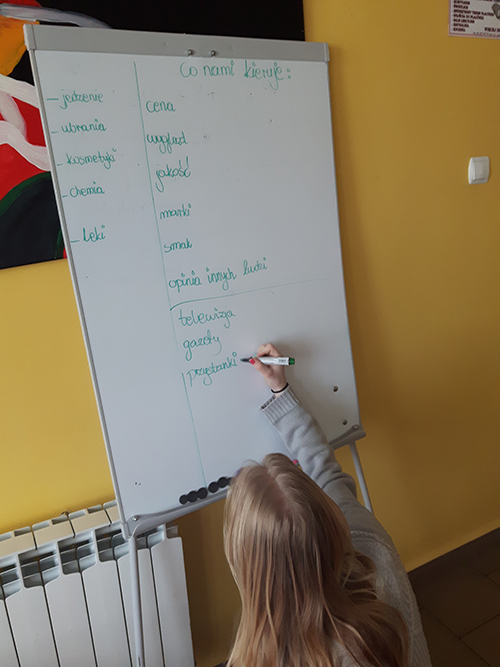 Co nami kieruje:
- jedzenie
- ubrania
- kosmetyki
- chemia
- leki
cena
wygląd
jakość
marki
smak
opinia innych ludzi
telewizja
gazety
przystanki